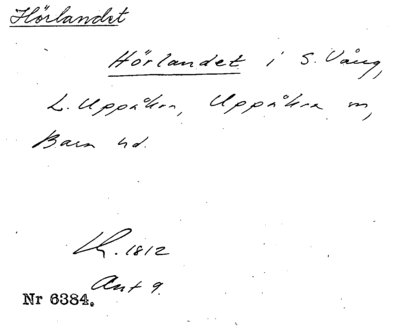 Hörlandet
Hörlandet i S. Vång,
L. Uppåkra, Uppåkra sn,
Bara hd.
1812
Akt 9.
Nr 6384.